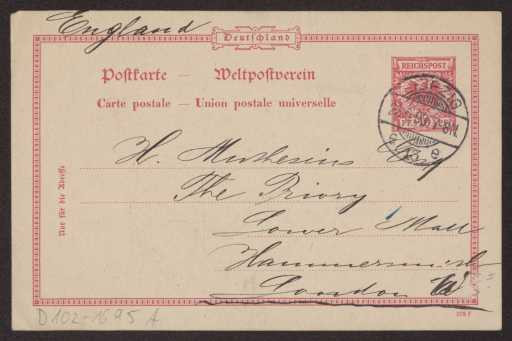 England
Deutschland
Postkarte — Weltpostverein
Carte postale — Union postale universelle
REICHSPOST
LEIPZIG
13 e
H. Muthesius Esq
The Priory
Lower Mall
Hammersmith
London W
Nur für die Adresse
D102-1695 A